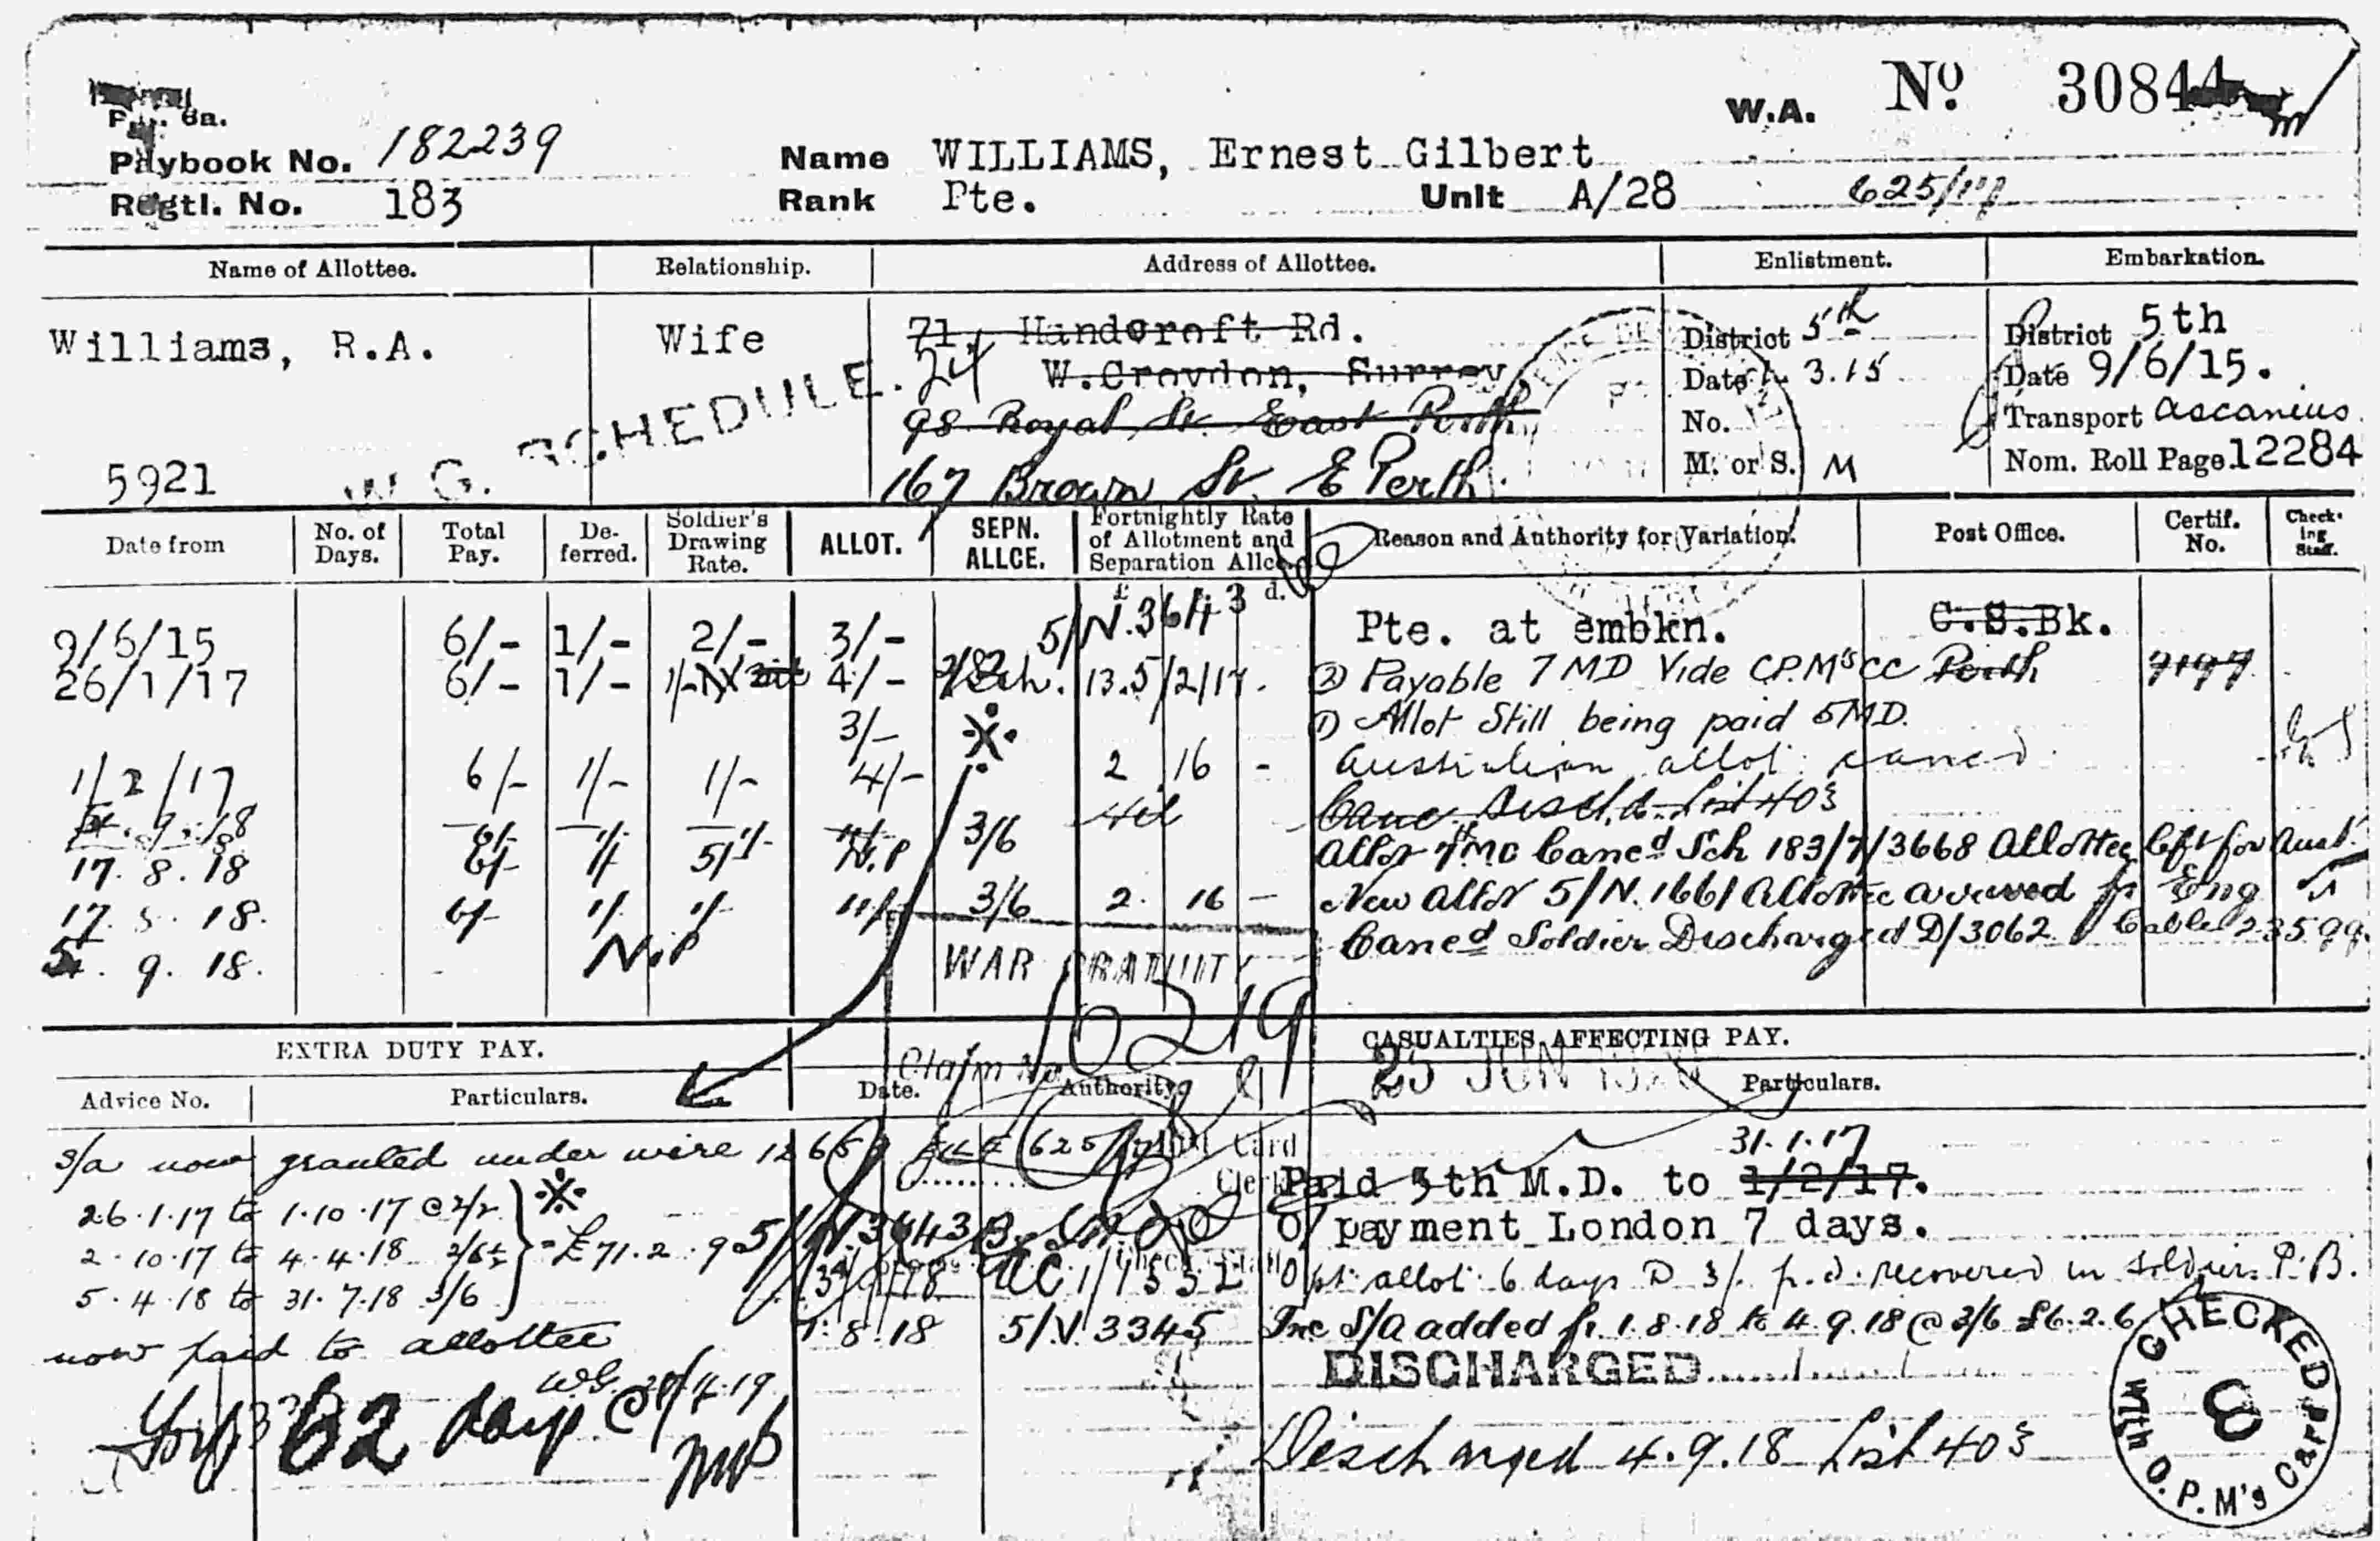 W.A. No. 30844
Paybook No. 182239 Name WILLIAMS, Ernest Gilbert
Regtl. No. 183 Rank Pte. Unit A/28 625/17
Name of Allottee. Relationship. Address of Allottee. Enlistment. Embarkation.
Williams, R.A. Wife 71, Handcroft Rd. District 5th District 5th
24 W.Croydon, Surrey Date 3.15 Date 9/6/15.
98 Royal St. East Perth No. Transport Ascanius
5921 W G. SCHEDULE. 167 Brown St. E Perth. M. or S. M Nom. Roll Page 12284
Date from No. of Days. Total Pay. De-ferred. Soldier's Drawing Rate. ALLOT. SEPN. ALLCE. Fortnightly Rate of Allotment and Separation Allce. Reason and Authority for Variation. Post Office. Certif. No. Check-ing Staff.
£ d.
9/6/15 6/- 1/- 2/- 3/- 5/N.3643 Pte. at embkn. C.S.Bk.
26/1/17 6/- 1/- 4/- 13.5/2/17. (2) Payable 7 MD Vide CPM's CC Perth 7197
3/- (1) Allot Still being paid 5MD.
1/2/17 6/- 1/- 1/- 4/- 2 16 - Australian allot cancd
Nil Canc Disch.d List 403
17.8.18 6/- 1/- 5/- 3/6 Allot 7th MD Cancd Sch 183/7/3668 Allottee left for Aust.
17.8.18. 6/- 1/- 1/- 4/- 3/6 2. 16 - New Allot 5/N.1661 Allottee arrived fr Eng
5. 9. 18. Nil Cancd Soldier Discharged D/3062 Cable 23599.
WAR GRATUITY
EXTRA DUTY PAY. Claim No. CASUALTIES AFFECTING PAY.
25 JUN
Advice No. Particulars. Date. Authority. Particulars.
S/a now granted under wire 31.1.17
Card Clerk Paid 5th M.D. to 1/2/17.
26.1.17 to 1.10.17 @ 2/2 O/payment London 7 days.
2.10.17 to 4.4.18 = £71.2.9 5/N.3643
5.4.18 to 31.7.18 3/6 O/pt. allot. 6 days @ 3/- p.d. recovered in soldiers P.B.
now paid to allottee 1.8.18 5/N.3345 Inc S/A added fr 1.8.18 to 4.9.18 @ 3/6 £6.2.6
DISCHARGED
62 days W.G.
Discharged 4.9.18 List 403
CHECKED 8 With O.P.M's Card